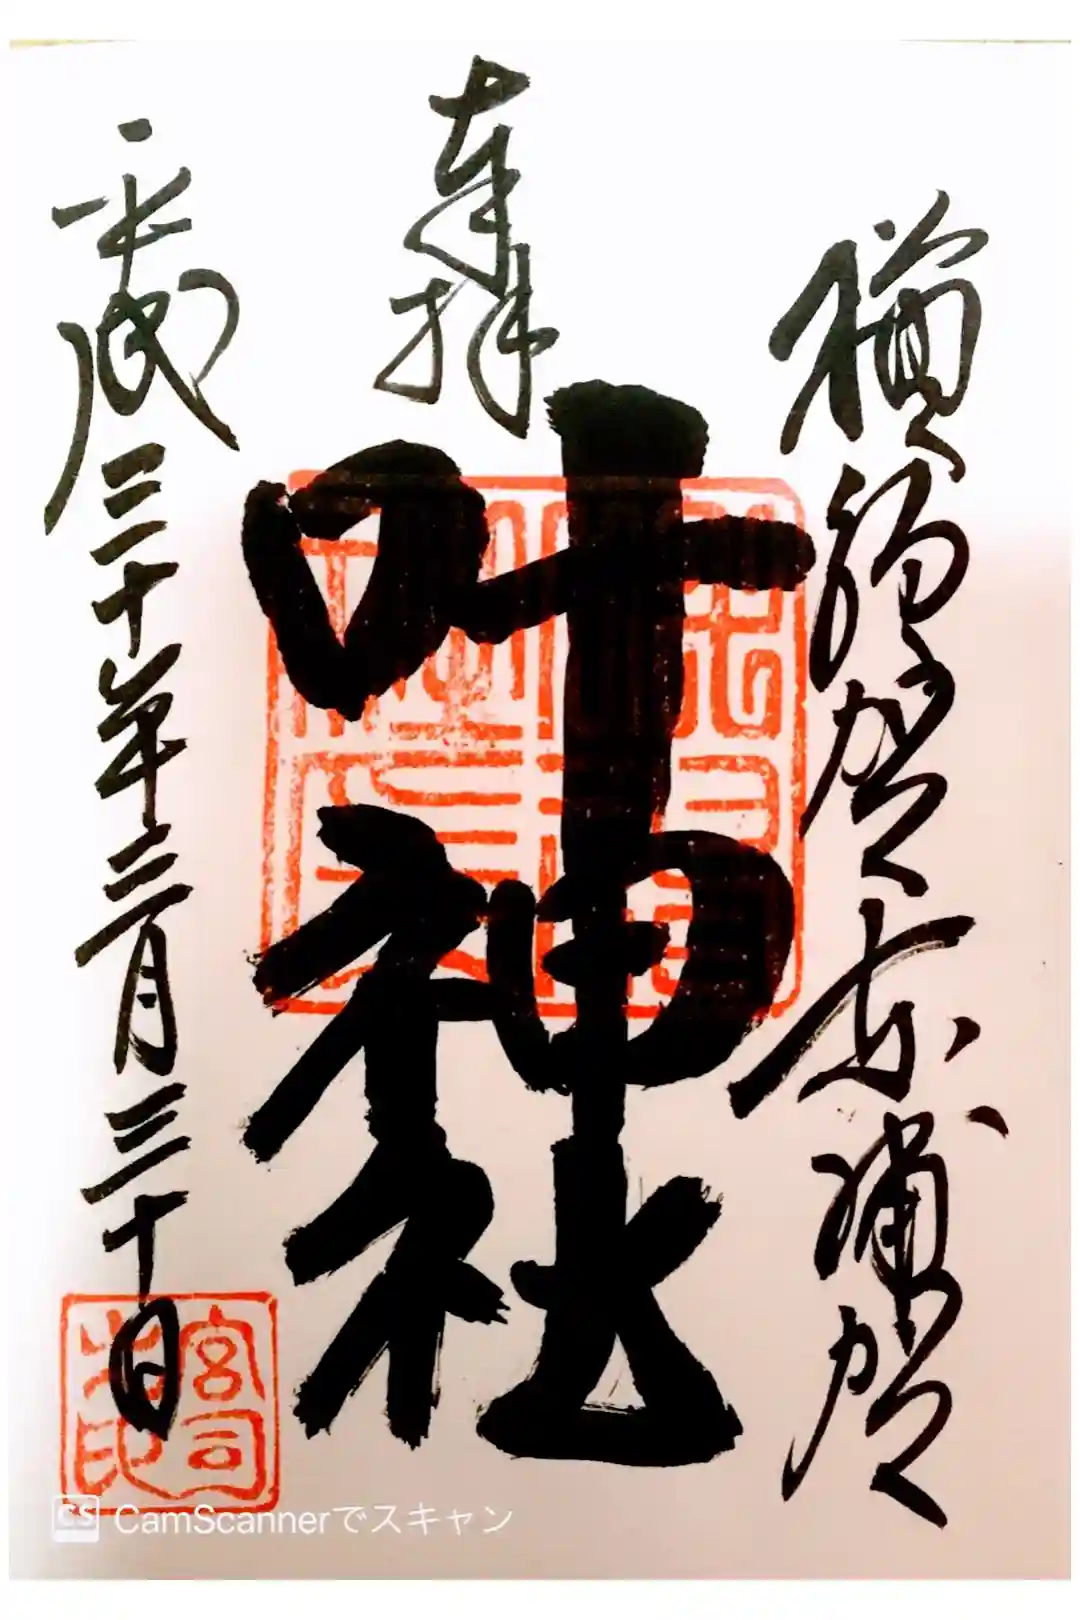 横須賀東浦賀
奉拝
叶神社
平成三十年三月三十日
宮司之印
CS CamScannerでスキャン